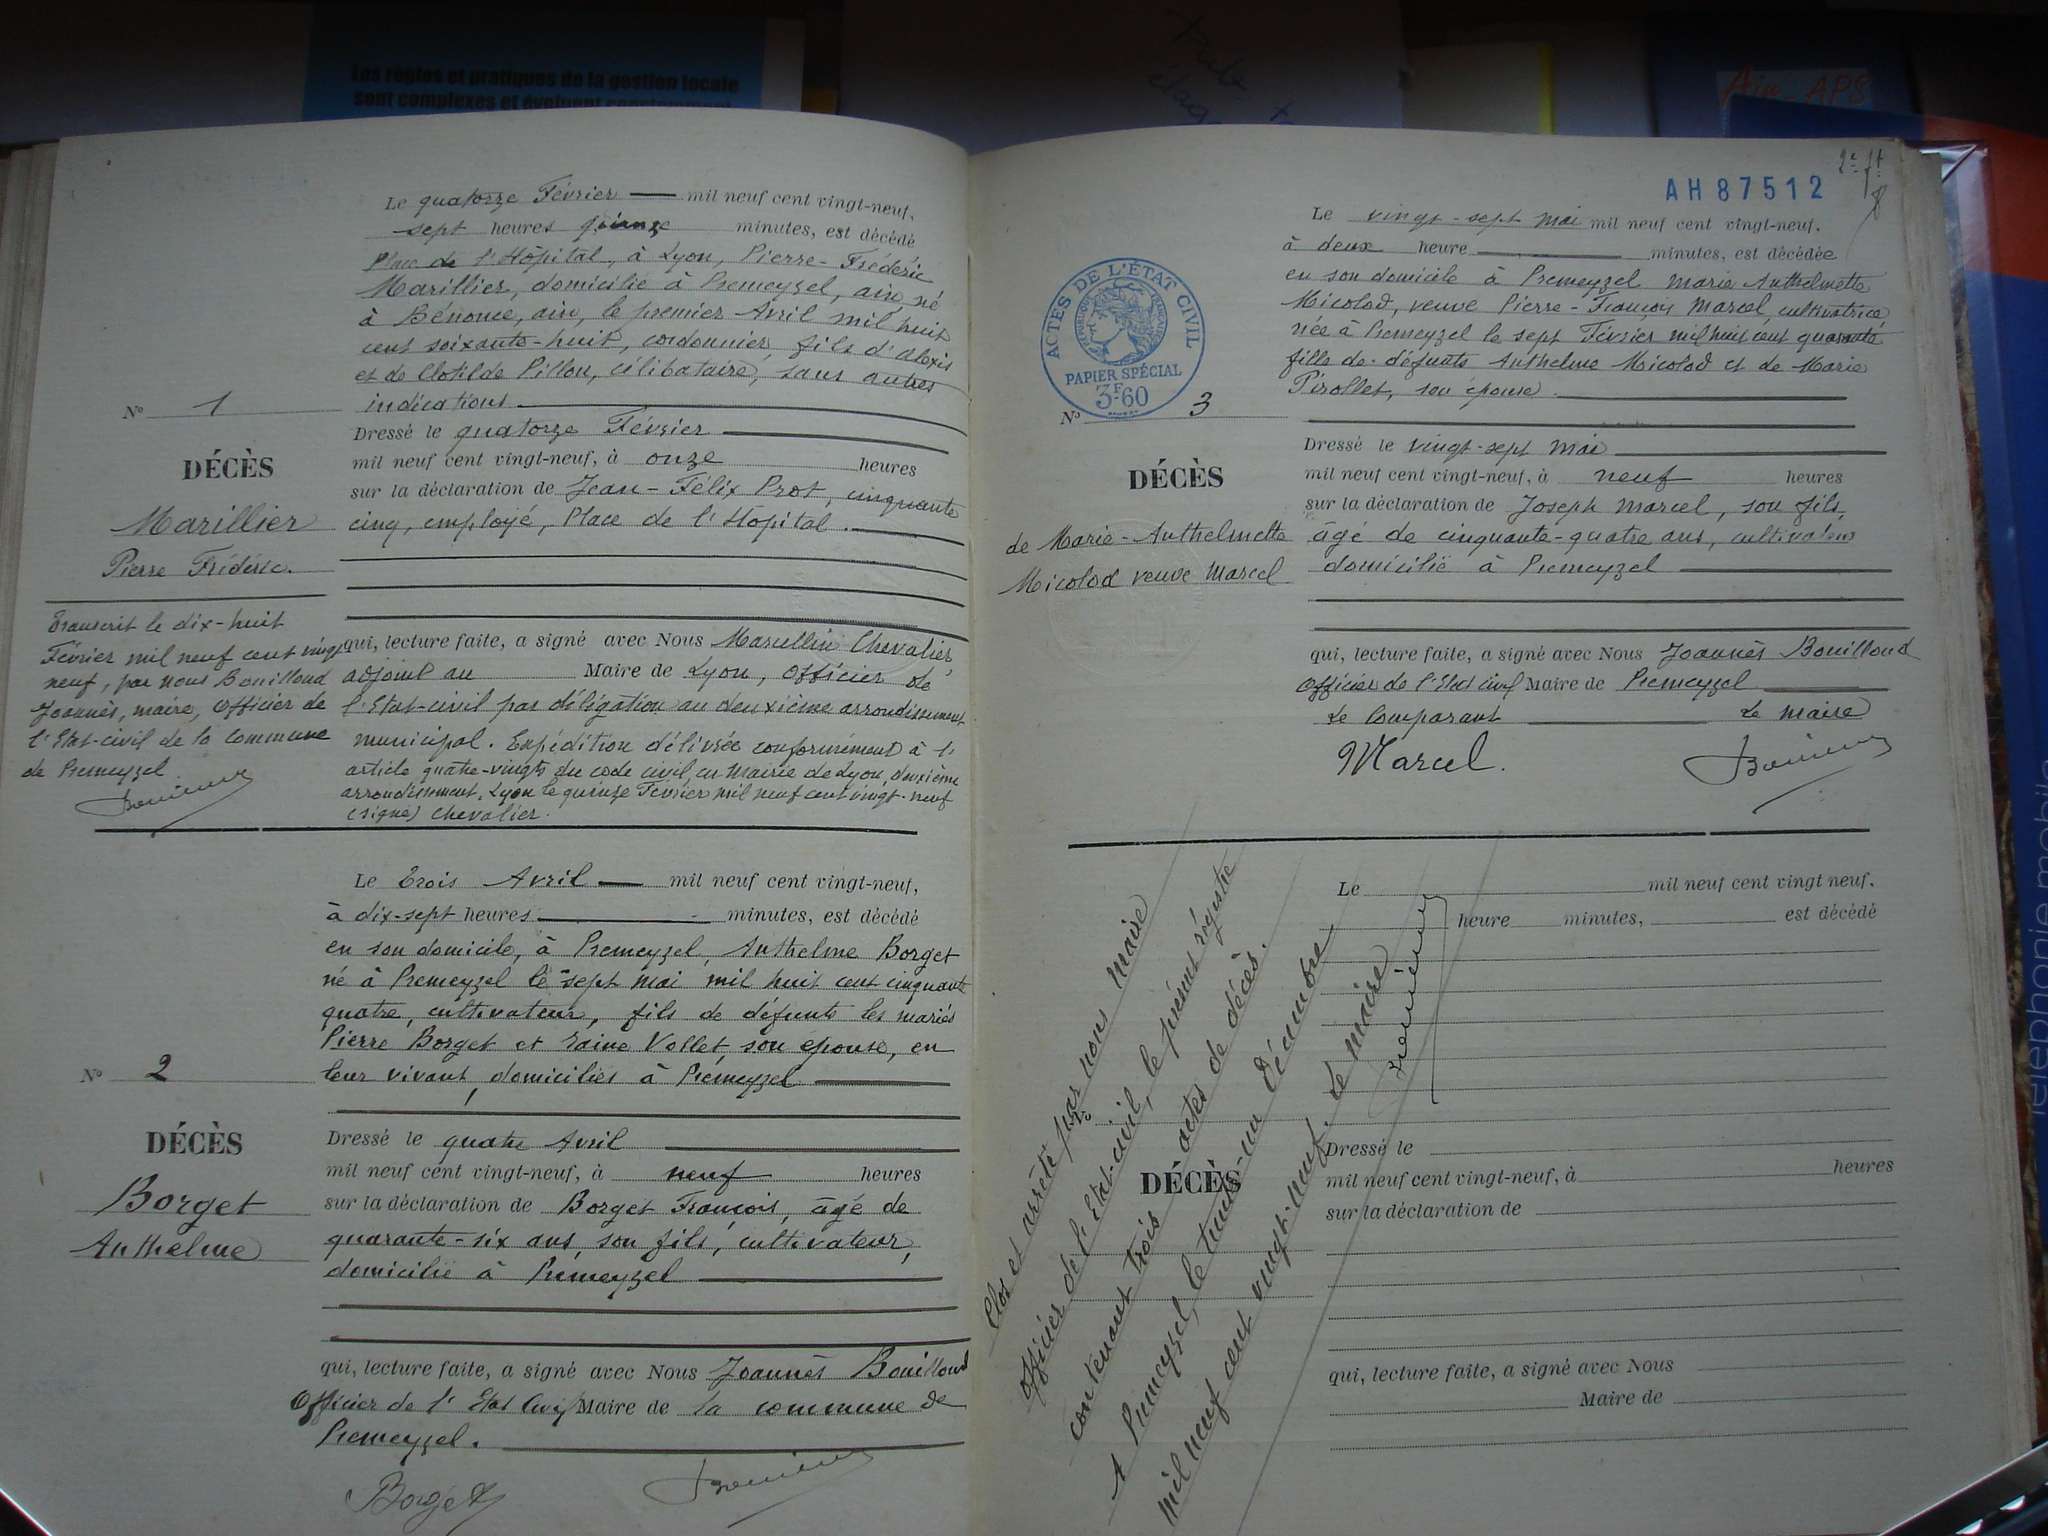 Les règles et pratiques de la gestion locale
sont complexes et évoluent constamment
Ain APS
téléphonie mobile
Le quatorze Février mil neuf cent vingt-neuf,
sept heures quinze minutes, est décédé
Place de l'Hôpital, à Lyon, Pierre-Frédéric
Marillier, domicilié à Premeyzel, ain, né
à Bénonce, ain, le premier Avril mil huit
cent soixante-huit, cordonnier, fils d'Alexis
et de Clotilde Pillon, célibataire, sans autres
indications.
No 1
DÉCÈS
Marillier
Pierre Frédéric.
Transcrit le dix-huit
Février mil neuf cent vingt
neuf, par nous Bouilloud
Joannès, maire, Officier de
l'Etat-civil de la commune
de Premeyzel
Dressé le quatorze Février
mil neuf cent vingt-neuf, à onze heures
sur la déclaration de Jean-Félix Prot, cinquante
cinq, employé, Place de l'Hôpital.
qui, lecture faite, a signé avec Nous Marcellin Chevalier,
adjoint au Maire de Lyon, Officier de
l'Etat-civil par délégation au deuxième arrondissement
municipal. Expédition délivrée conformément à l'
article quatre-vingts du code civil, en Mairie de Lyon, deuxième
arrondissement. Lyon le quinze Février mil neuf cent vingt-neuf
(signé) Chevalier.
Le Trois Avril mil neuf cent vingt-neuf,
à dix-sept heures minutes, est décédé
en son domicile, à Premeyzel, Anthelme Borget
né à Premeyzel le sept mai mil huit cent cinquante
quatre, cultivateur, fils de défunts les mariés
Pierre Borget et Vollet, son épouse, en
leur vivant, domiciliés à Premeyzel
No 2
DÉCÈS
Borget
Anthelme
Dressé le quatre Avril
mil neuf cent vingt-neuf, à neuf heures
sur la déclaration de Borget François, âgé de
quarante-six ans, son fils, cultivateur,
domicilié à Premeyzel
qui, lecture faite, a signé avec Nous Joannès Bouilloud
Officier de l'Etat Civil Maire de la commune de
Premeyzel.
Borget
AH87512
2e ft
Le vingt-sept mai mil neuf cent vingt-neuf.
à deux heure minutes, est décédée
en son domicile à Premeyzel Marie Anthelmette
Micolod, veuve Pierre-François Marcel, cultivatrice
née à Premeyzel le sept Février mil huit cent quarante
fille de défunts Anthelme Micolod et de Marie
Pirollet, son épouse.
ACTES DE L'ÉTAT CIVIL
PAPIER SPÉCIAL
3F60
No 3
DÉCÈS
de Marie-Anthelmette
Micolod veuve Marcel
Dressé le vingt-sept mai
mil neuf cent vingt-neuf, à neuf heures
sur la déclaration de Joseph Marcel, son fils,
âgé de cinquante-quatre ans, cultivateur
domicilié à Premeyzel
qui, lecture faite, a signé avec Nous Joannès Bouilloud
Officier de l'Etat civil Maire de Premeyzel
Le Comparant Le Maire
Marcel.
Clos et arrêté par nous maire
officier de l'Etat-civil, le présent régistre
contenant trois actes de décès.
A Premeyzel, le trente-un Décembre
mil neuf cent vingt-neuf. Le Maire
Le mil neuf cent vingt neuf.
heure minutes, est décédé
No
DÉCÈS
Dressé le
mil neuf cent vingt-neuf, à heures
sur la déclaration de
qui, lecture faite, a signé avec Nous
Maire de